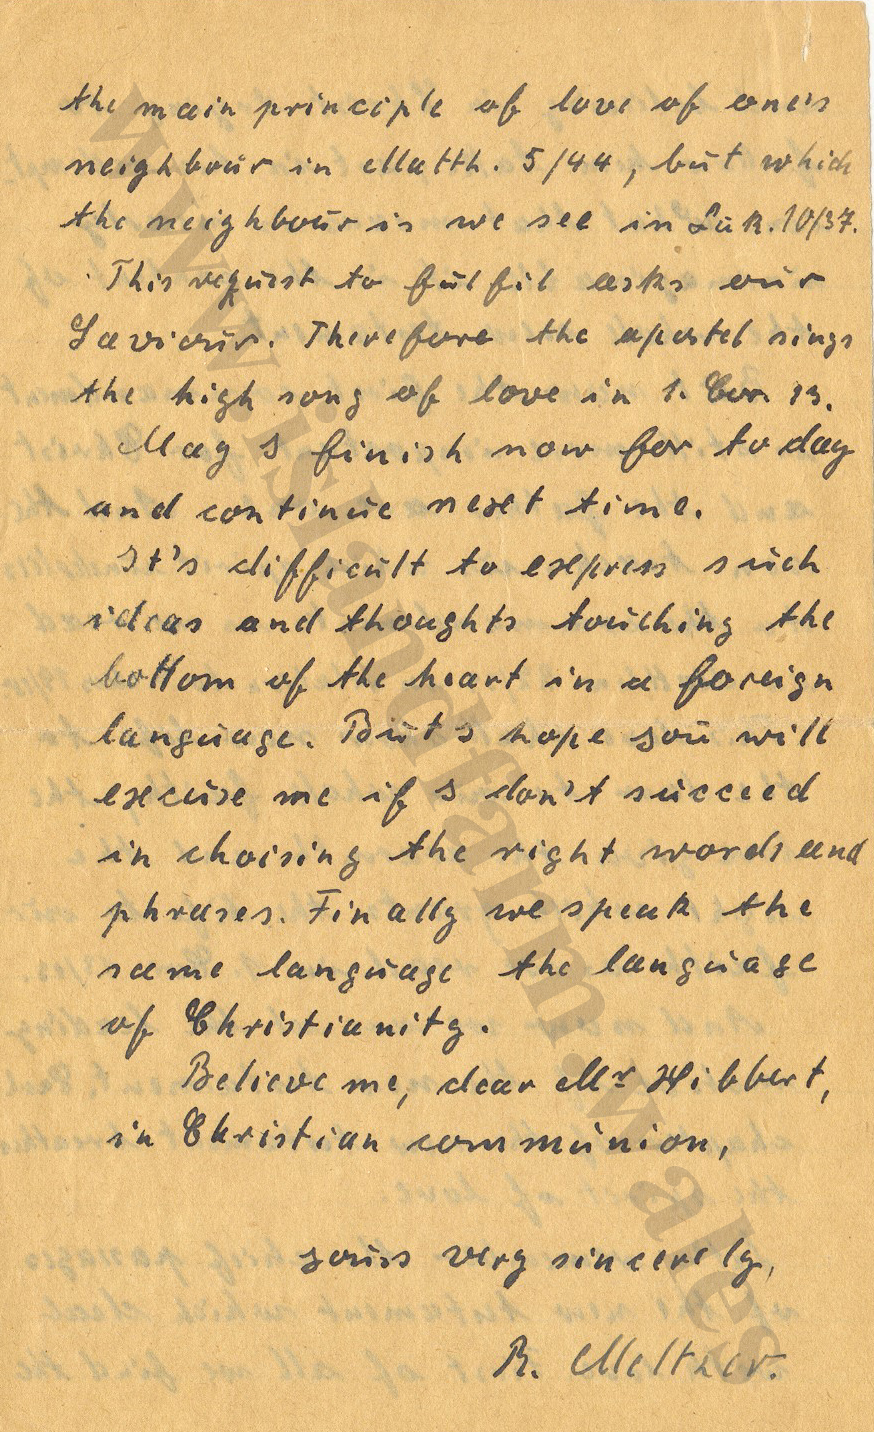 the main principle of love of one's
neighbour in Matth. 5/44, but which
the neighbour is we see in Luk. 10/37.
This request to fulfil asks our
Saviour. Therefore the apostel sings
the high song of love in 1. Cor. 13.
May I finish now for to day
and continue next time.
It's difficult to express such
ideas and thoughts touching the
bottom of the heart in a foreign
language. But I hope you will
excuse me if I don't succeed
in choising the right words and
phrases. Finally we speak the
same language the language
of Christianity.
Believe me, dear Mr Hibbert,
in Christian communion,
yours very sincerely,
R. Meltzer.
www.islandfarm.wales